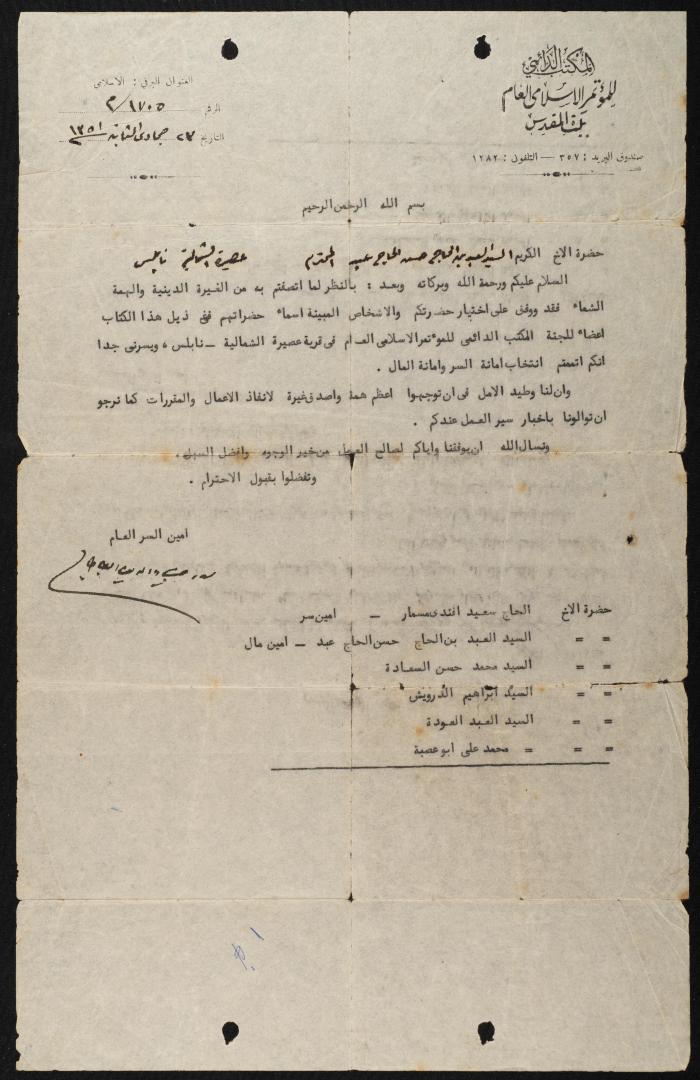 المكتب الدائمي
للمؤتمر الاسلامي العام
ببيت المقدس
صندوق البريد : ٣٥٧ — التلفون : ١٢٨٢
العنوان البرقي : الاسلامي
الرقم ١٧٠٥/م
التاريخ ٢٣ جمادى الثانية ١٣٥١
بسم الله الرحمن الرحيم
حضرة الاخ الكريم السيد العبد بن الحاج حسن الحاج عبد المحترم عصيرة الشمالية نابلس
السلام عليكم ورحمة الله وبركاته وبعد : بالنظر لما اتصفتم به من الغيرة الدينية والهمة
الشماء فقد ووفق على اختيار حضرتكم والاشخاص المبينة اسماء حضراتهم في ذيل هذا الكتاب
اعضاء للجنة المكتب الدائمي للموتمر الاسلامي العام في قرية عصيرة الشمالية – نابلس ، ويسرني جدا
انكم اتممتم انتخاب امانة السر وامانة المال .
وان لنا وطيد الامل في ان توجهوا اعظم همة واصدق غيرة لانفاذ الاعمال والمقررات كما نرجو
ان توالونا باخبار سير العمل عندكم .
ونسال الله ان يوفقنا واياكم لصالح العمل من خير الوجوه وافضل السبل .
وتفضلوا بقبول الاحترام .
امين السر العام
حضرة الاخ الحاج سعيد افندي مسمار – امين سر
= = السيد العبد بن الحاج حسن الحاج عبد – امين مال
= = السيد محمد حسن السعادة
= = السيد ابراهيم الدرويش
= = السيد العبد العودة
= = = محمد علي ابو عصبة